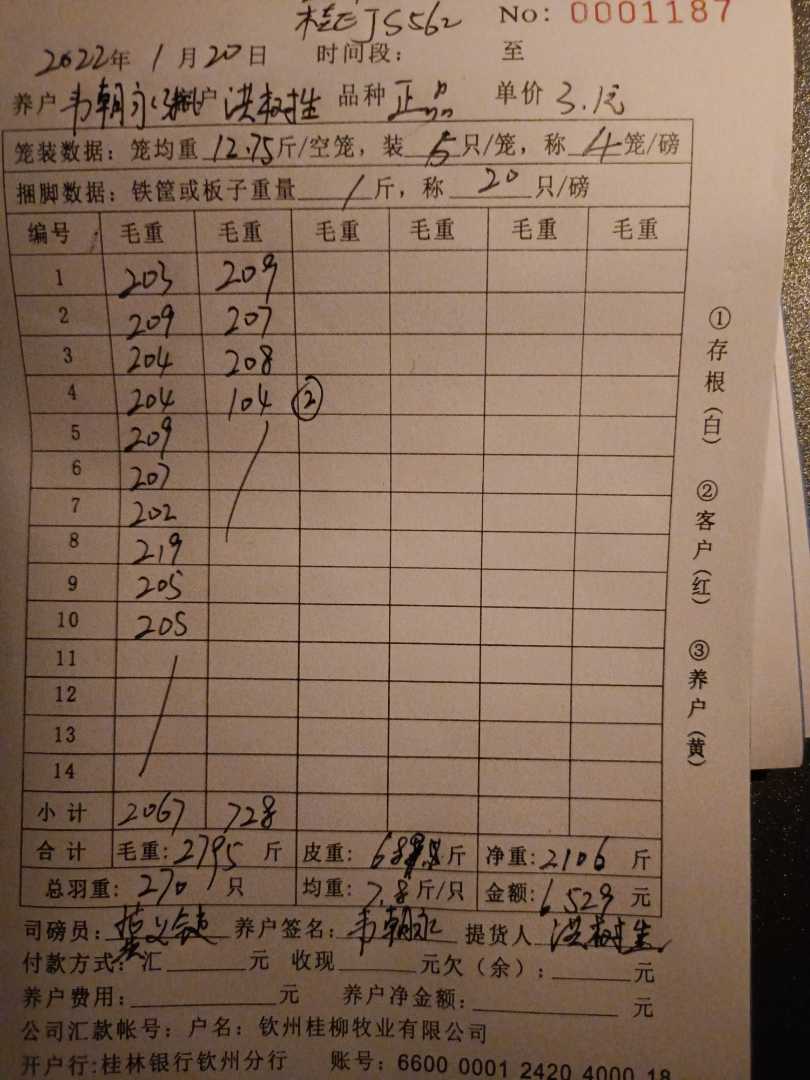 桂JS562 No: 0001187
2022年 1月20日 时间段： 至
养户 韦朝永 客户 洪树生 品种 正品 单价 3.1元
笼装数据：笼均重 12.75斤/空笼，装 5只/笼，称 4笼/磅
捆脚数据：铁筐或板子重量 1斤，称 20只/磅
编号 毛重 毛重 毛重 毛重 毛重 毛重
1 203 209
2 209 207
3 204 208
4 204 104 ②
5 209
6 207
7 202
8 219
9 205
10 205
11
12
13
14
小计 2067 728
合计 毛重：2795斤 皮重：斤 净重：2106斤
总羽重：270只 均重：7.8斤/只 金额：6529元
司磅员： 养户签名：韦朝永 提货人 洪树生
付款方式：汇 元 收现 元欠（余）： 元
养户费用： 元 养户净金额： 元
公司汇款帐号：户名：钦州桂柳牧业有限公司
开户行：桂林银行钦州分行 账号：6600 0001 2420 4000 18
①存根（白） ②客户（红） ③养户（黄）